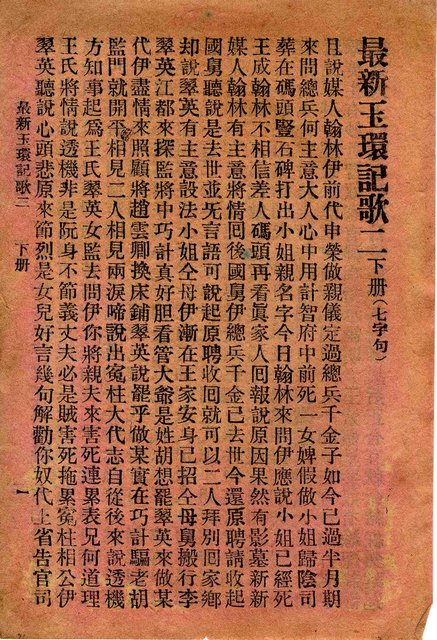 最新玉環記歌二 下册（七字句）
且說媒人翰林伊前代申榮做親儀定過總兵千金子如今已過半月期
來問總兵何主意大人心中用計智府中前死一女婢假做小姐歸陰司
葬在碼頭豎石碑打出小姐親名字今日翰林來問伊應說小姐已經死
王成翰林不相信差人碼頭再看眞家人回報說原因果然有影墓新新
媒人翰林有主意將情回後國舅伊總兵千金已去世今還原聘請收起
國舅聽說是去世並旡言語可說起原聘收回就可以二人拜別回家鄉
却說翠英有主意設法小姐仝母伊漸在王家安身已招仝母舅搬行李
翠英江都來探監將中巧計真好胆看管大爺是姓胡想罷翠英來做某
代伊盡情來照顧將趙雲卿換床鋪翠英說罷乎做某實在巧計騙老胡
監門就開乎相見二人相見兩淚啼說出冤枉大代志自從後來說透機
方知事起爲王氏翠英女監去問伊你將親夫來害死連累表兄何道理
王氏將情說透機非是阮身不節義丈夫必是賊害死拖累冤枉相公伊
翠英聽說心頭悲原來節烈是女兒好言幾句解勸你奴代上省告官司
最新玉環記歌二 下册 一